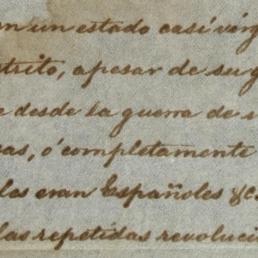 en un estado casi vírg
strito, apesar de su g
e desde la guerra de s
as, ó completamente
les eran Españoles &c.
las repetidas revoluci